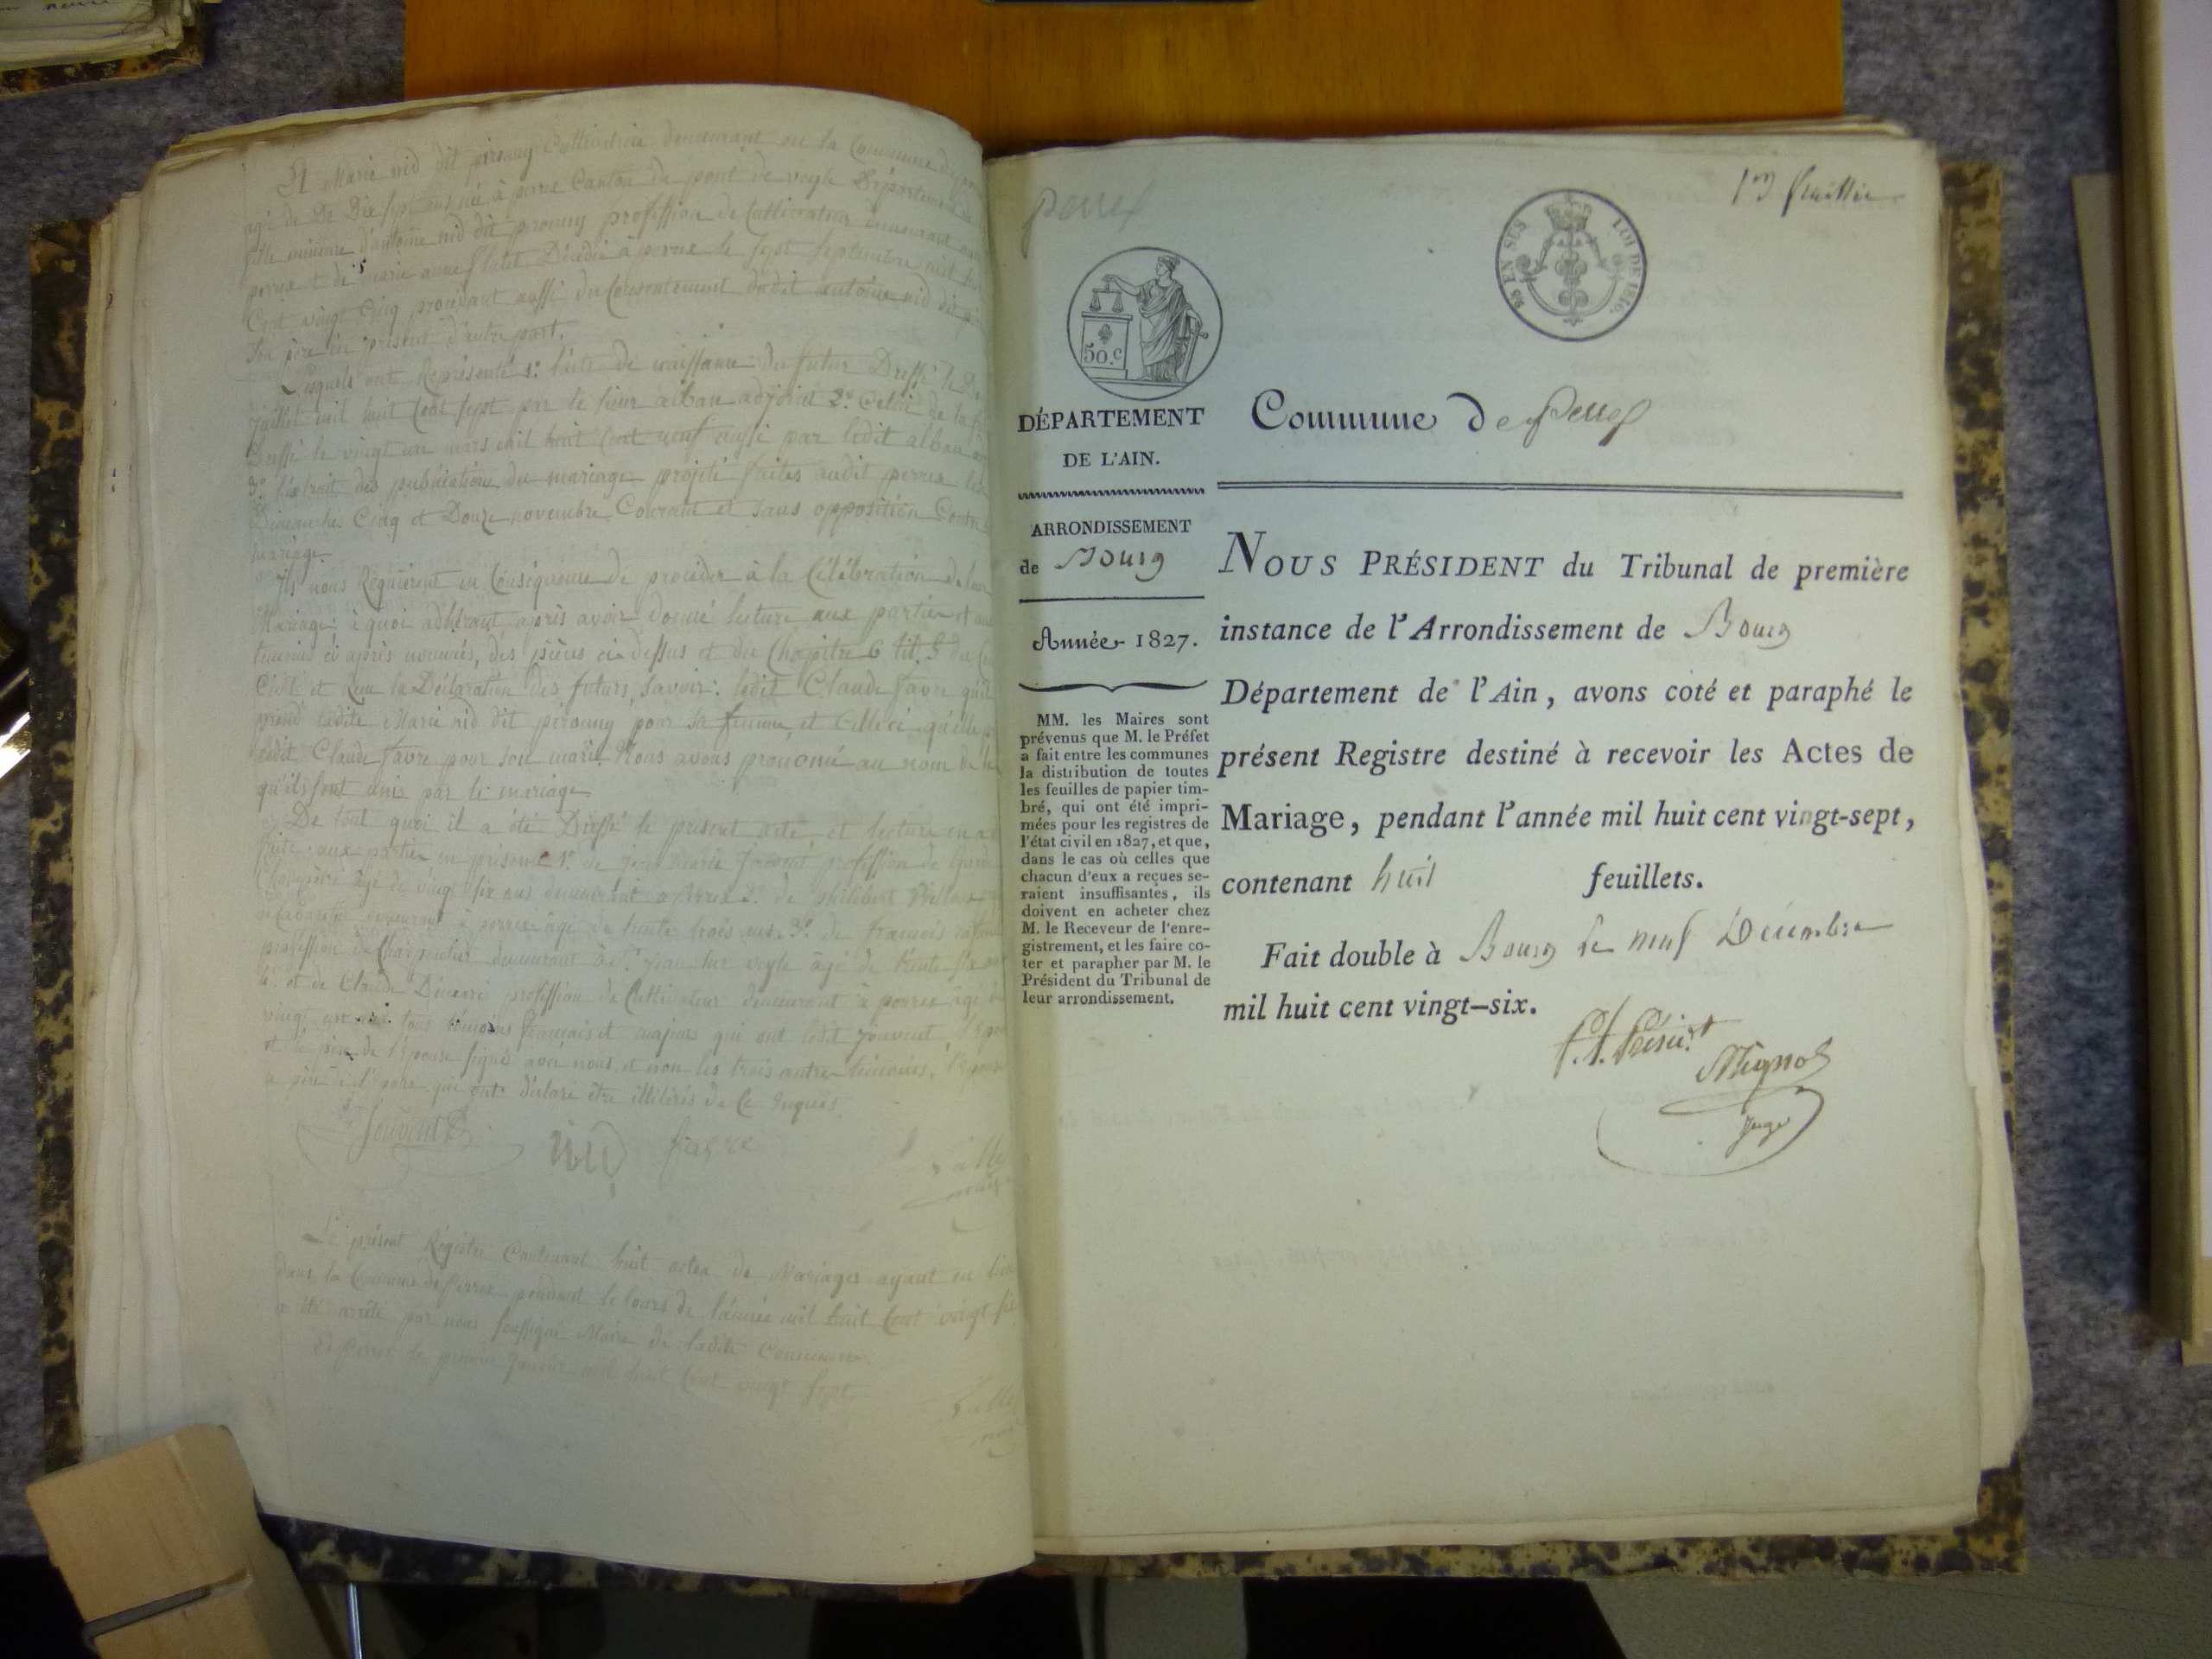 Et Marie nid dit pirouny Cultivatrice demeurant en la Commune de
agé de Dix Sept ans née à perrex Canton de pont de veyle Département
fille mineure d'antoine nid dit pirouny profession de Cultivateur demeurant
perrex et de marie anne Décédée à perrex le sept Septembre mil
Cent vingt Cinq procédant aussi du Consentement dudit antoine nid dit
son père ici présent d'autre part.
Lesquels ont Représenté 1º l'acte de naissance du futur Dressé le
juillet mil huit Cent sept par le sieur alban adjoint 2º Celui de la
Dressé le vingt un mars mil huit Cent neuf aussi par ledit alban
3º l'extrait des publications du mariage projeté faites audit perrex les
Dimanches Cinq et Douze novembre Courant et sans opposition Contre
mariage
Ils nous Requièrent en Conséquence de procéder à la Célébration de leur
Mariage: à quoi adhérant après avoir donné lecture aux parties et aux
témoins ci après nommés, des pièces ci-dessus et du Chapitre 6 tit. 5 du
Civil et Reçu la Déclaration des futurs, savoir: ledit Claude favre qu'il
prend ladite Marie nid dit pirouny pour sa femme, et Celle ci qu'elle
ledit Claude favre pour son mari. Nous avons prononcé au nom de la
qu'ils sont unis par le mariage
De tout quoi il a été Dressé le présent acte, et lecture en a
faite aux parties en présence 1º de jean marie Jouvent profession de
Champêtre âgé de vingt six ans demeurant à perrex 2º de philibert
demeurant à perrex âgé de trente trois ans. 3º de francois
profession de Charpentier demeurant à St. jean sur veyle âgé de trente six
4º et de Claude profession de Cultivateur demeurant à perrex âgé de
vingt un ans tous témoins français et majeurs qui ont ledit Jouvent,
et le père de l'épouse signé avec nous, et non les trois autres témoins, l'épouse
le père de l'époux qui ont déclaré être illitérés de Ce Enquis.
Jouvent
nid favre
Le présent Régistre Contenant huit actes de Mariages ayant eu lieu
dans la Commune de Perrex pendant le Cours de l'année mil huit Cent vingt six
a été arrêté par nous soussigné Maire de ladite Commune
à Perrex le premier Janvier mil huit Cent vingt sept
perrex
1er feuillet
50.c
LOI DE 1816.
DÉPARTEMENT
DE L'AIN.
ARRONDISSEMENT
de Bourg
Année 1827.
MM. les Maires sont
prévenus que M. le Préfet
a fait entre les communes
la distribution de toutes
les feuilles de papier tim-
bré, qui ont été impri-
mées pour les registres de
l'état civil en 1827, et que,
dans le cas où celles que
chacun d'eux a reçues se-
raient insuffisantes, ils
doivent en acheter chez
M. le Receveur de l'enre-
gistrement, et les faire co-
ter et parapher par M. le
Président du Tribunal de
leur arrondissement.
Commune de Perrex
NOUS PRÉSIDENT du Tribunal de première
instance de l'Arrondissement de Bourg
Département de l'Ain, avons coté et paraphé le
présent Registre destiné à recevoir les Actes de
Mariage, pendant l'année mil huit cent vingt-sept,
contenant huit feuillets.
Fait double à Bourg Le neuf Décembre
mil huit cent vingt-six.
Mignot
juge